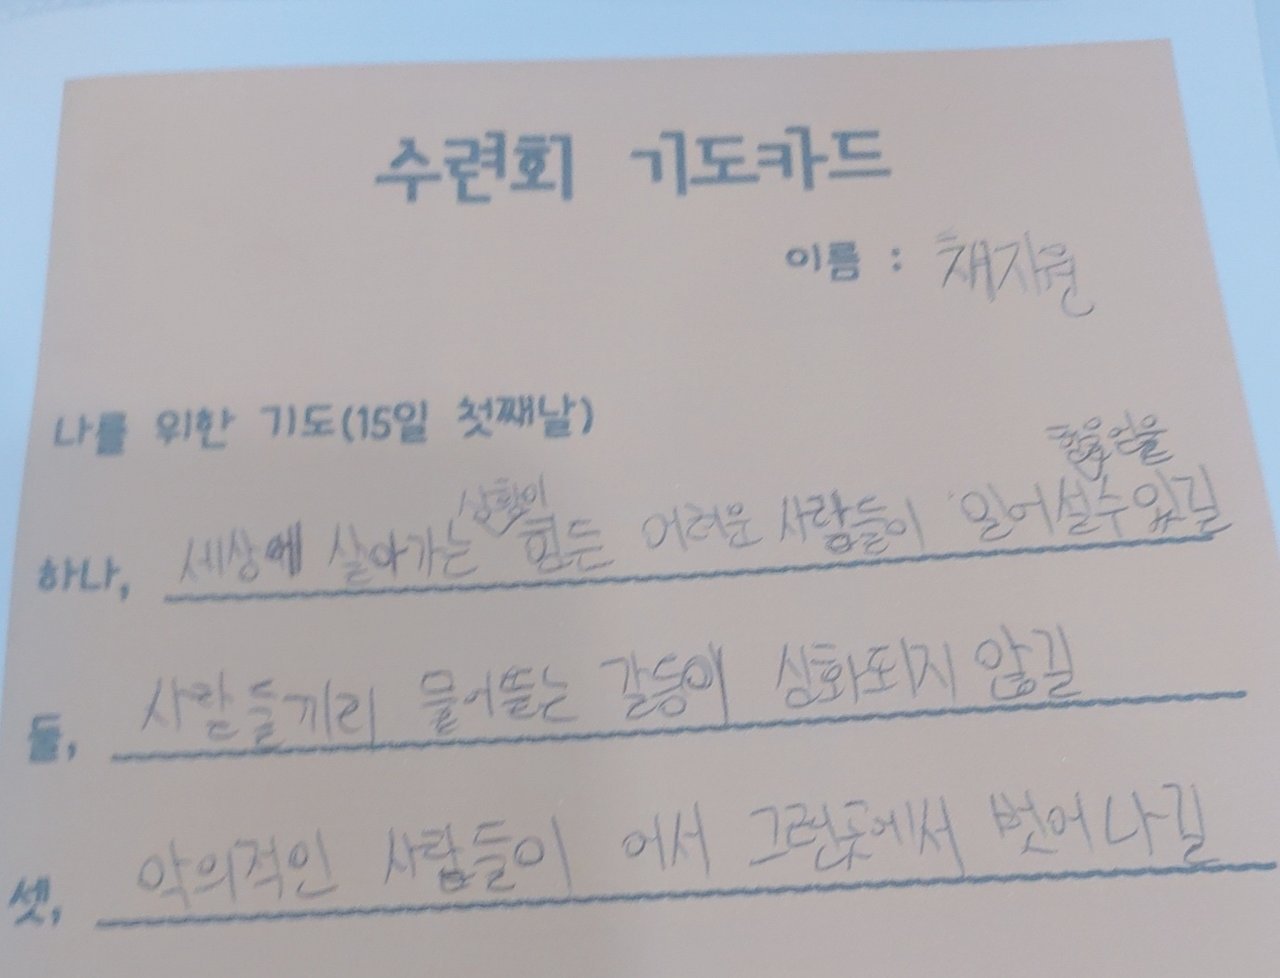 수련회 기도카드
이름 : 채지원
나를 위한 기도(15일 첫째날)
하나, 세상에 살아가는 상황이 힘든 어려운 사람들이 힘을 얻을 일어설수있길
둘, 사람들끼리 물어뜯는 갈등이 심화되지 않길
셋, 악의적인 사람들이 어서 그런곳에서 벗어나길